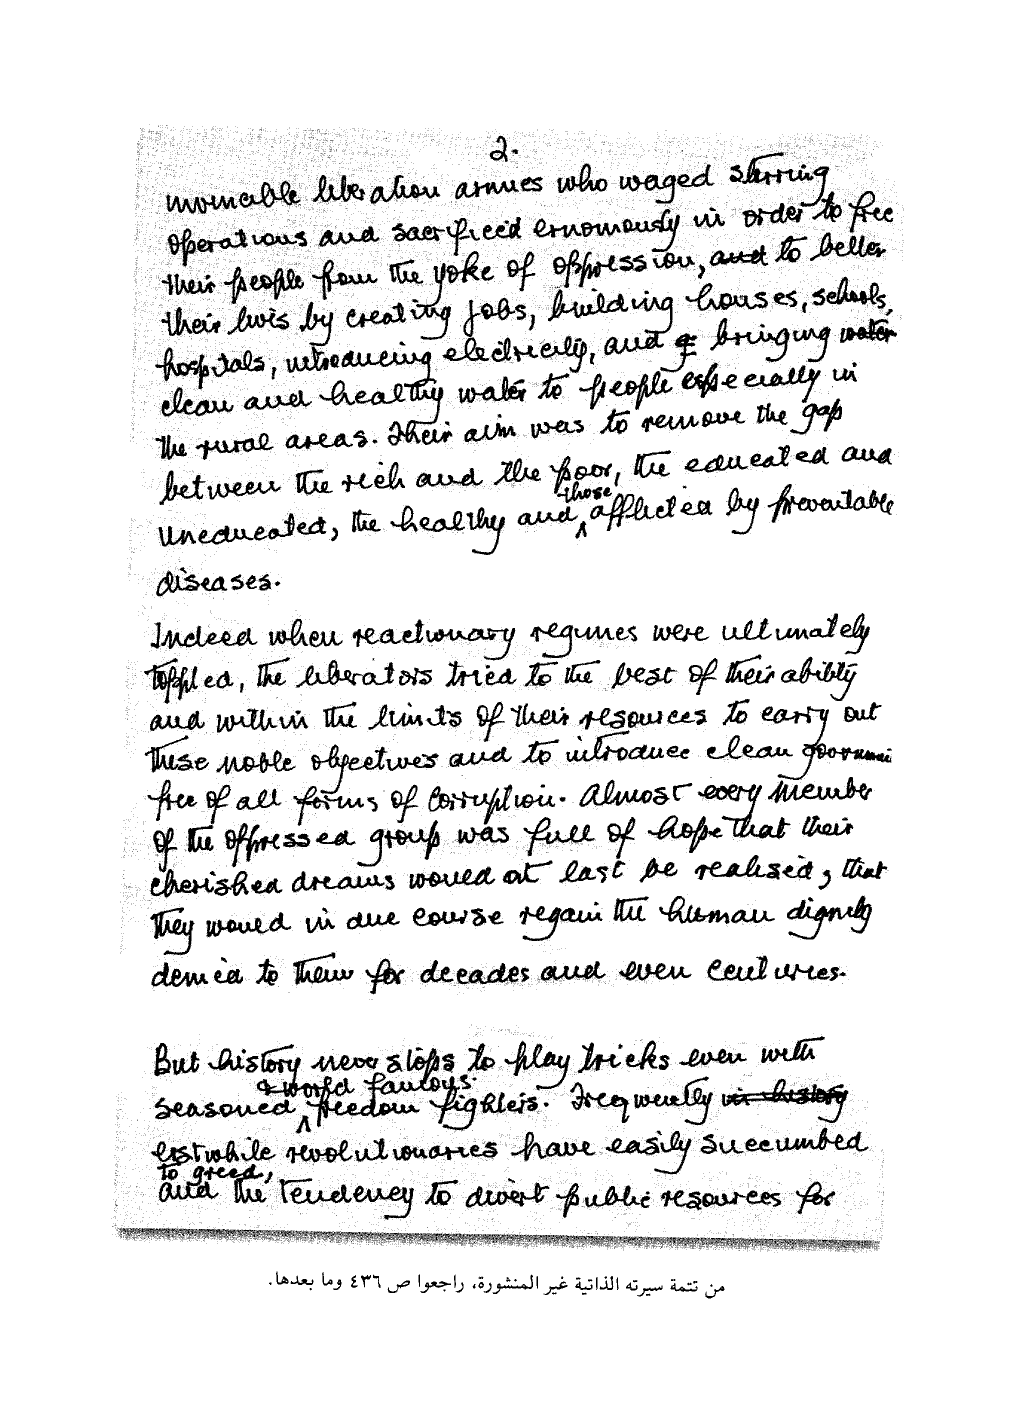 2.
invincible liberation armies who waged stirring
operations and sacrificed ernomously in order to free
their people from the yoke of oppression, and to better
their lives by creating jobs, building houses, schools,
hospitals, introducing electricity, and bringing water
clean and healthy water to people especially in
the rural areas. Their aim was to remove the gap
between the rich and the poor, the educated and
those
uneducated, the healthy and afflicted by preventable
diseases.
Indeed when reactionary regimes were ultimately
toppled, the liberators tried to the best of their ability
and within the limits of their resources to carry out
these noble objectives and to introduce clean
free of all forms of corruption. Almost every member
of the oppressed group was full of hope that their
cherished dreams would at last be realised, that
they would in due course regain the human dignity
denied to them for decades and even centuries.
But history never stops to play tricks even with
& world famous
seasoned freedom fighters. Frequently in history
erstwhile revolutionaries have easily succumbed
to greed,
and the tendency to divert public resources for
من تتمة سيرته الذاتية غير المنشورة، راجعوا ص ٤٣٦ وما بعدها.